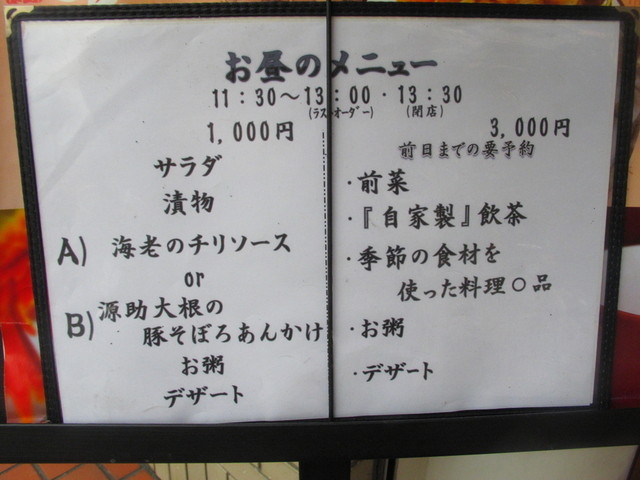 お昼のメニュー
11:30～13:00・13:30
(ラストオーダー) (閉店)
1,000円
サラダ
漬物
A) 海老のチリソース
or
B) 源助大根の
豚そぼろあんかけ
お粥
デザート
3,000円
前日までの要予約
・前菜
・『自家製』飲茶
・季節の食材を
使った料理〇品
・お粥
・デザート